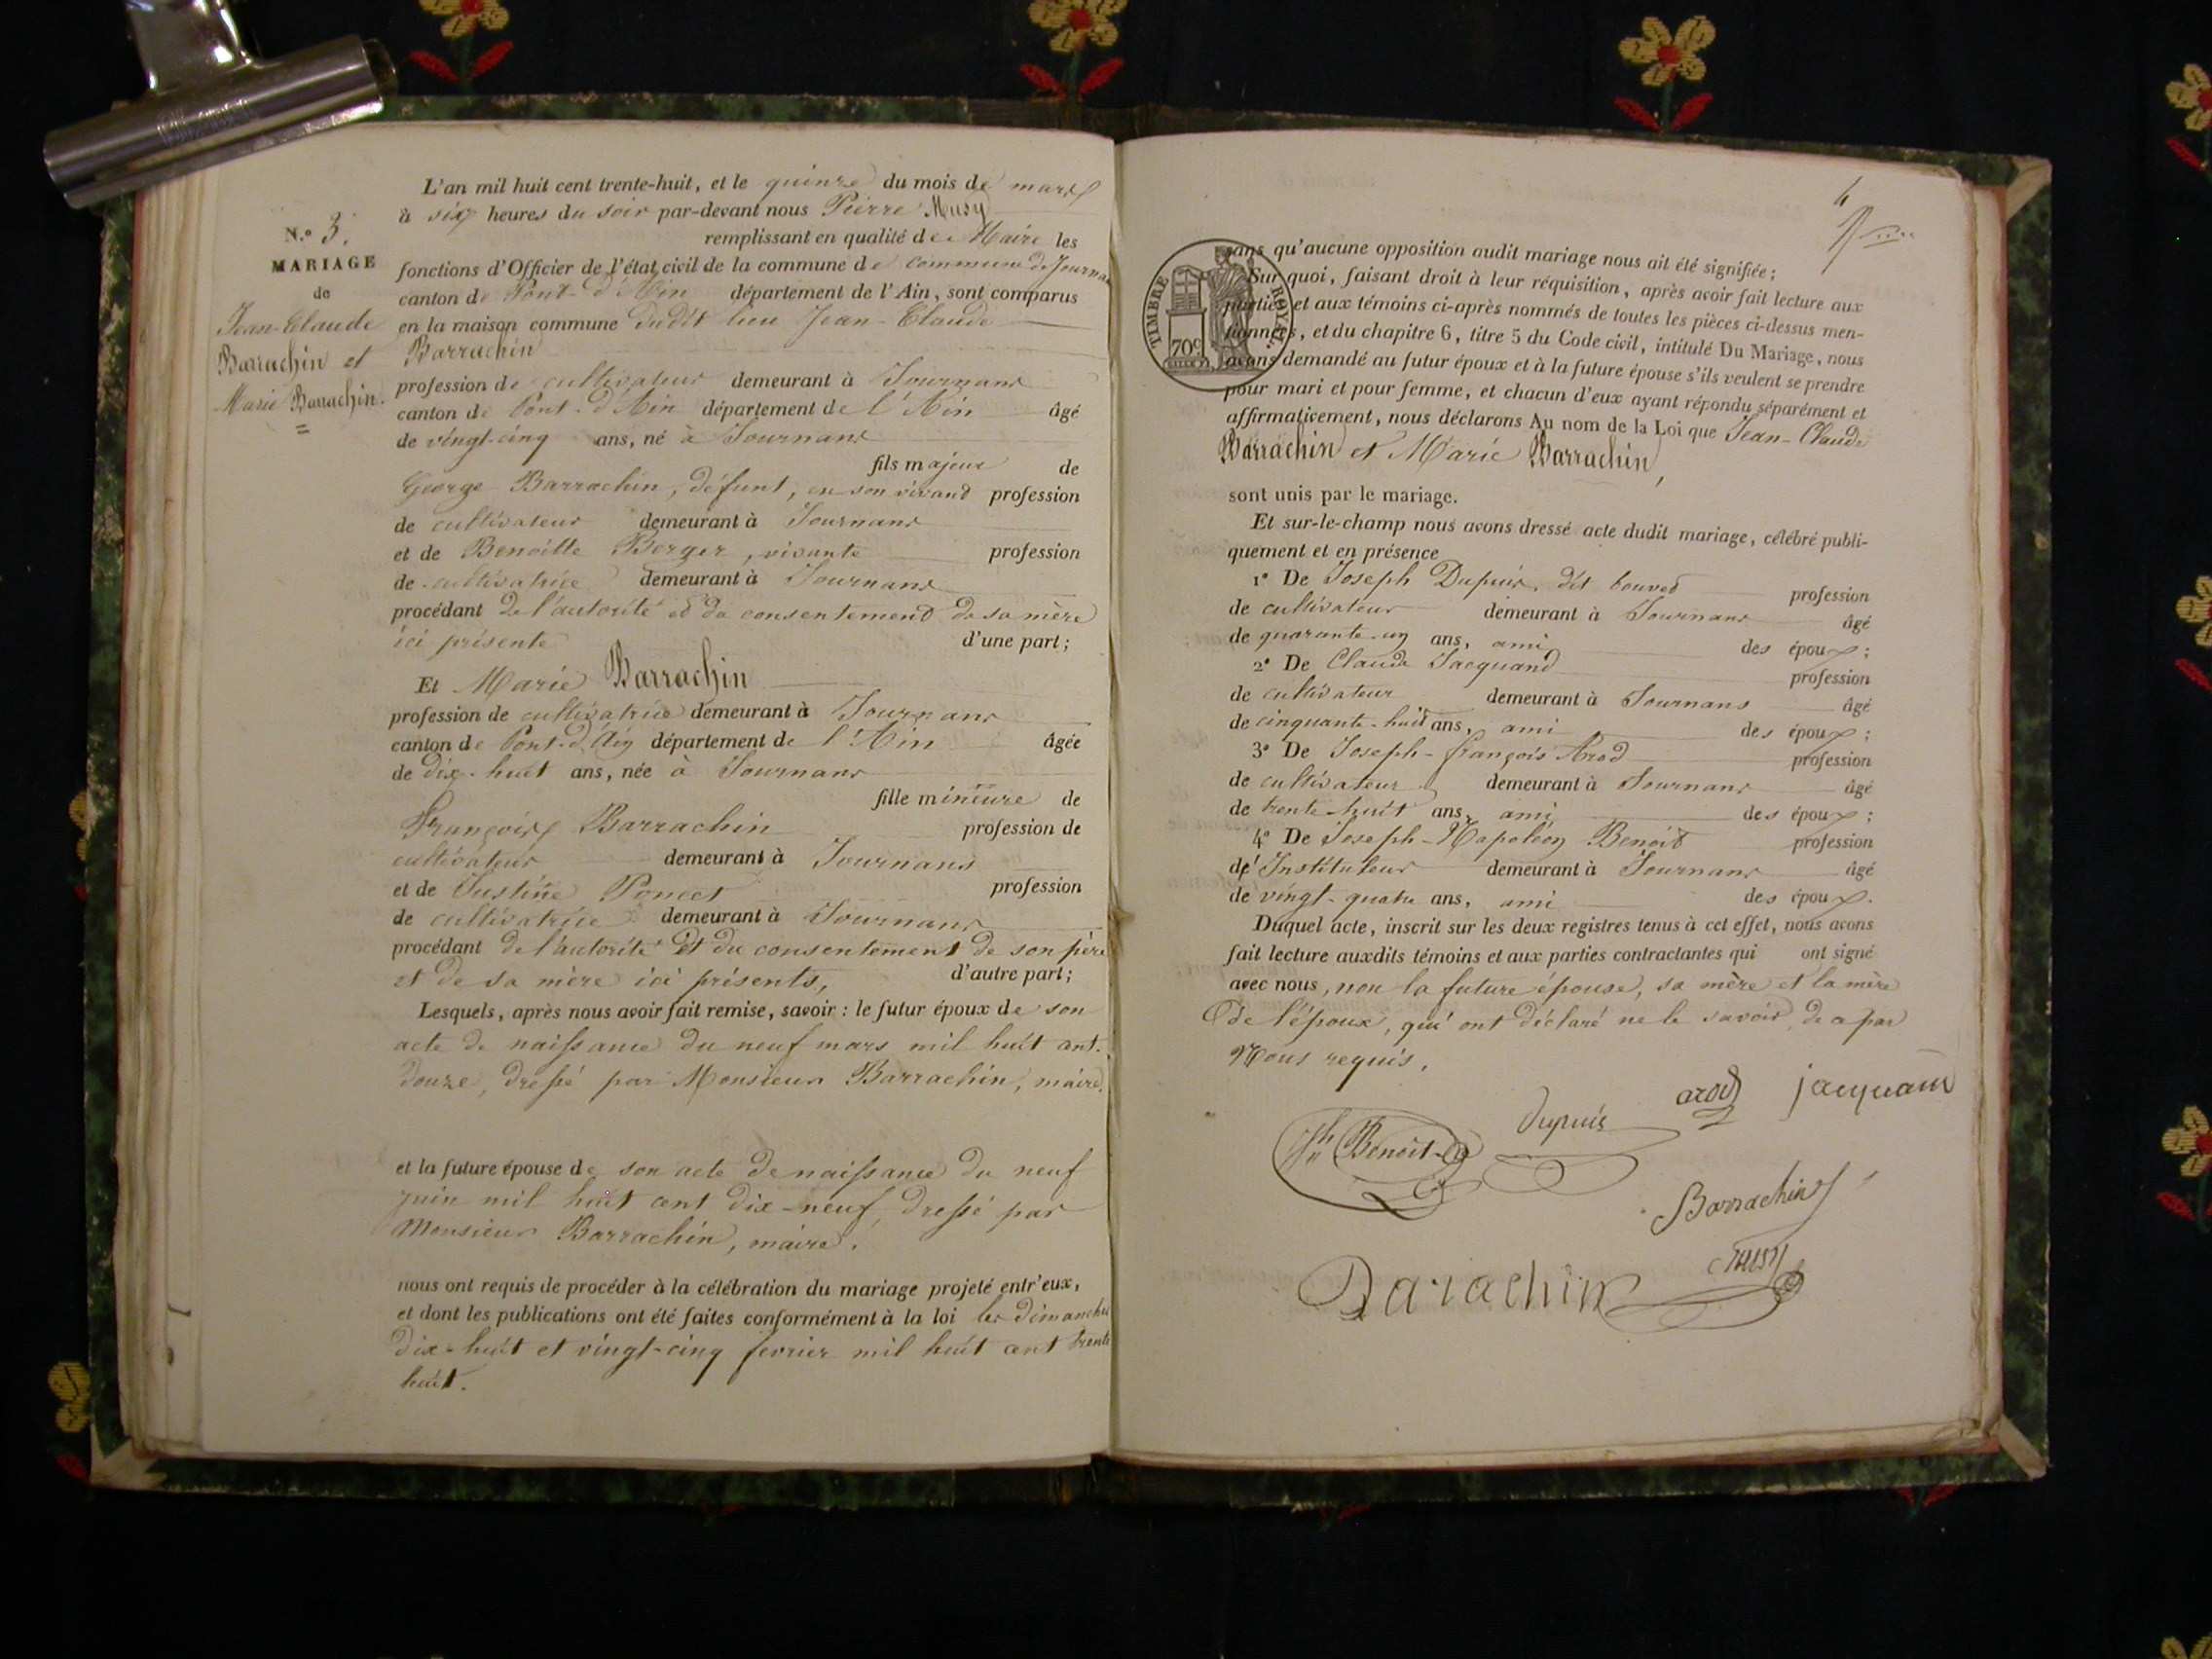 N.º 3.
MARIAGE
de
Jean-Claude
Barrachin et
Marie Barrachin.
L'an mil huit cent trente-huit, et le quinze du mois de mars
à six heures du soir par-devant nous Pierre Musy
remplissant en qualité de Maire les
fonctions d'Officier de l'état civil de la commune de commune de Journans
canton de Pont-d'Ain département de l'Ain, sont comparus
en la maison commune dudit lieu Jean-Claude
Barrachin
profession de cultivateur demeurant à Journans
canton de Pont-d'Ain département de l'Ain âgé
de vingt-cinq ans, né à Journans
fils majeur de
George Barrachin, défunt, en son vivant profession
de cultivateur demeurant à Journans
et de Benoitte Berger, vivante profession
de cultivatrice demeurant à Journans
procédant de l'autorité et du consentement de sa mère
ici présente d'une part;
Et Marie Barrachin
profession de cultivatrice demeurant à Journans
canton de Pont-d'Ain département de l'Ain âgée
de dix-huit ans, née à Journans
fille mineure de
François Barrachin profession de
cultivateur demeurant à Journans
et de Justine Poncet profession
de cultivatrice demeurant à Journans
procédant de l'autorité et du consentement de son père
et de sa mère ici présents, d'autre part;
Lesquels, après nous avoir fait remise, savoir : le futur époux de son
acte de naissance du neuf mars mil huit cent
douze, dressé par Monsieur Barrachin, maire.
et la future épouse de son acte de naissance du neuf
juin mil huit cent dix-neuf, dressé par
Monsieur Barrachin, maire.
nous ont requis de procéder à la célébration du mariage projeté entr'eux,
et dont les publications ont été faites conformément à la loi les dimanches
dix-huit et vingt-cinq fevrier mil huit cent trente
huit.
TIMBRE ROYAL
70c
sans qu'aucune opposition audit mariage nous ait été signifiée;
Sur quoi, faisant droit à leur réquisition, après avoir fait lecture aux
parties et aux témoins ci-après nommés de toutes les pièces ci-dessus men-
tionnées, et du chapitre 6, titre 5 du Code civil, intitulé Du Mariage, nous
avons demandé au futur époux et à la future épouse s'ils veulent se prendre
pour mari et pour femme, et chacun d'eux ayant répondu séparément et
affirmativement, nous déclarons Au nom de la Loi que Jean-Claude
Barrachin et Marie Barrachin,
sont unis par le mariage.
Et sur-le-champ nous avons dressé acte dudit mariage, célébré publi-
quement et en présence
1º De Joseph Dupuis, dit bouvet profession
de cultivateur demeurant à Journans âgé
de quarante-un ans, ami des époux;
2º De Claude Jacquand profession
de cultivateur demeurant à Journans âgé
de cinquante-huit ans, ami des époux;
3º De Joseph-françois Arod profession
de cultivateur demeurant à Journans âgé
de trente-huit ans, ami des époux;
4º De Joseph-Napoléon Benoit profession
d'Instituteur demeurant à Journans âgé
de vingt-quatre ans, ami des époux.
Duquel acte, inscrit sur les deux registres tenus à cet effet, nous avons
fait lecture auxdits témoins et aux parties contractantes qui ont signé
avec nous, non la future épouse, sa mère et la mère
de l'époux, qui ont déclaré ne le savoir, de ce par
Nous requis.
arod jacquand
Jh Benoit dupuis
Barrachin
Musy
Barachin